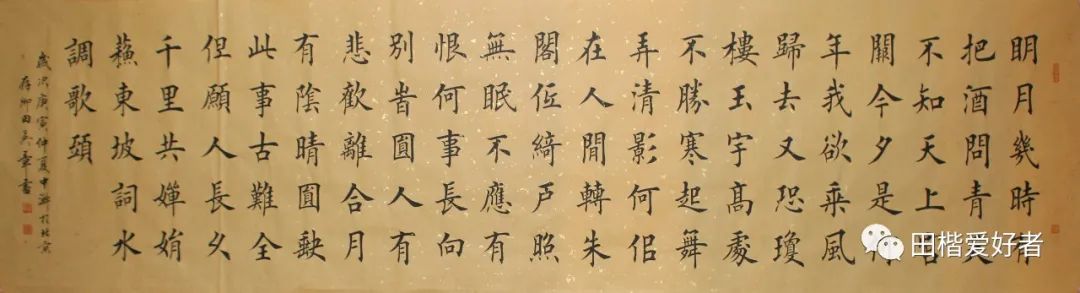 明月幾時有
把酒問青天
不知天上宮
闕今夕是何
年我欲乗風
歸去又恐瓊
樓玉宇高處
不勝寒起舞
弄清影何佀
在人間轉朱
閣低綺戶照
無眠不應有
恨何事長向
別旹圓人有
悲歡離合月
有陰晴圓缺
此事古難全
但願人長久
千里共嬋娟
蘇東坡詞水
調歌頭
歲次庚寅仲夏中浣於北京
存卿田英章書
田楷爱好者